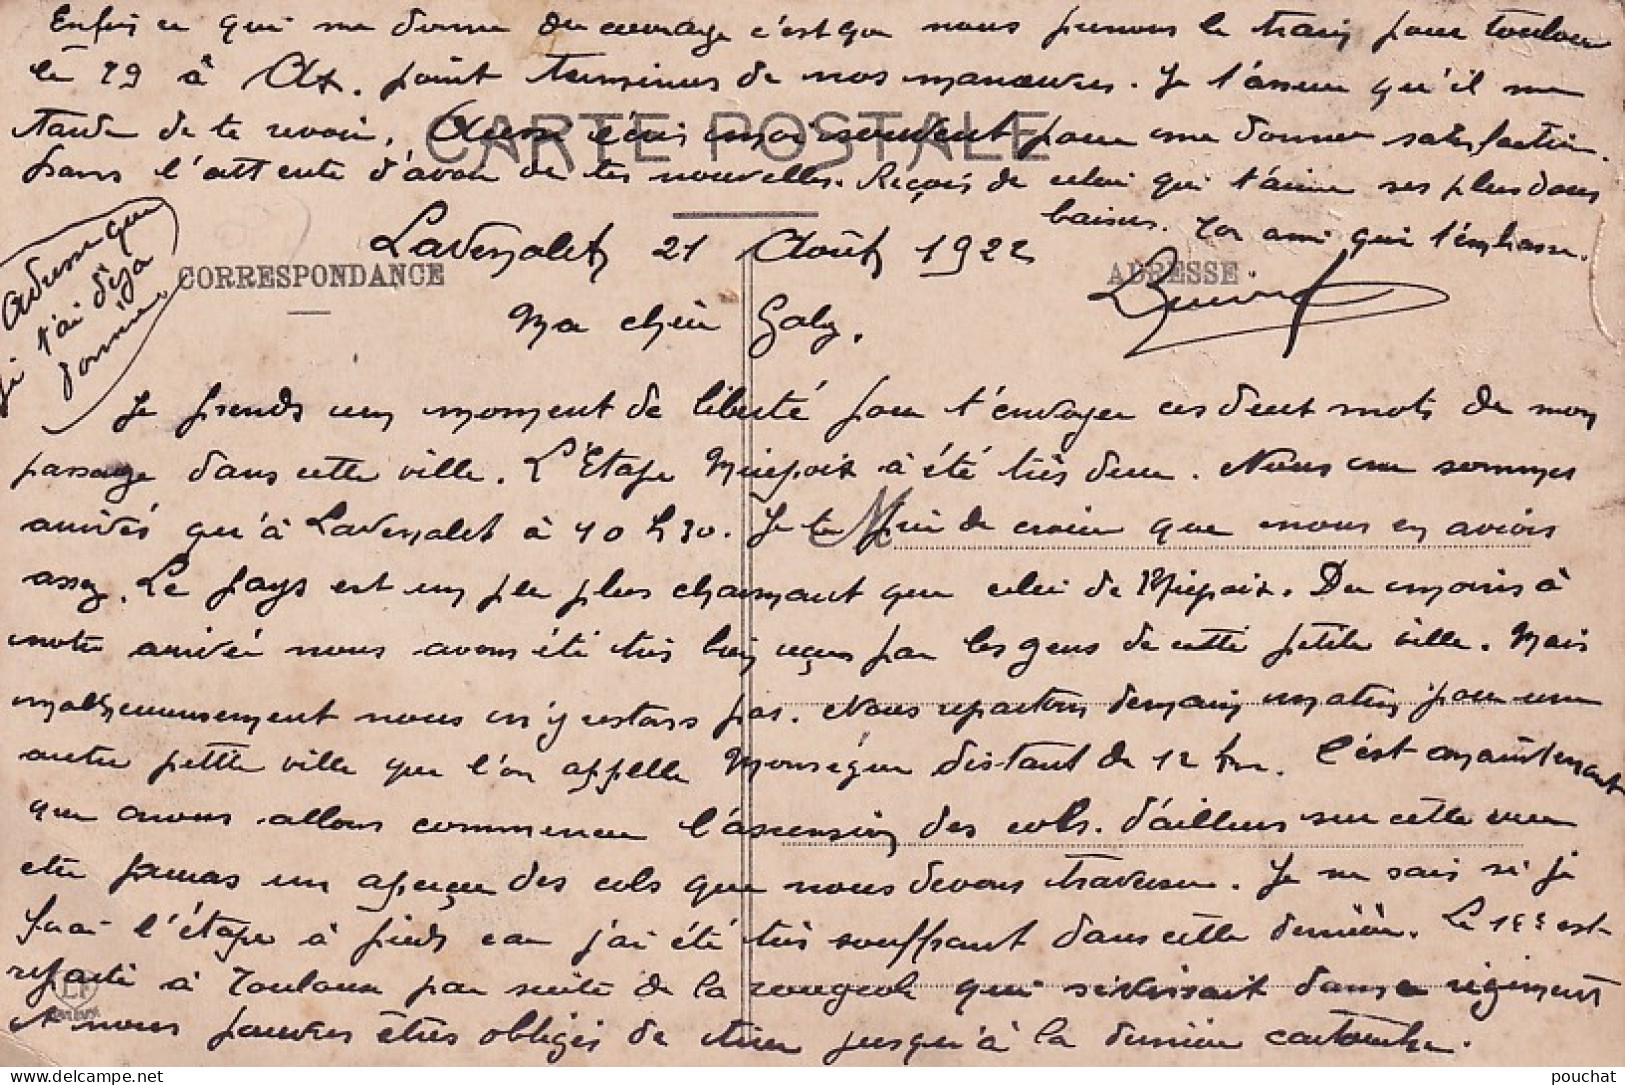 Enfin ce qui me donne du courage c'est que nous prenons le train pour Toulouse
le 29 à Ax. point terminus de nos manœuvres. Je t'assure qu'il me
tarde de te revoir. Aussi écris moi souvent pour me donner satisfaction.
Dans l'attente d'avoir de tes nouvelles. Reçois de celui qui t'aime ses plus doux
baisers. Ton ami qui t'embrasse.
CARTE POSTALE
Adresse que
je t'ai déjà
donnée
CORRESPONDANCE
ADRESSE
Lavelanet 21 Août 1922
Ma chère Gaby.
Je prends un moment de liberté pour t'envoyer ces deux mots de mon
passage dans cette ville. L'Etape Mirepoix à été très dure. Nous ne sommes
arrivés qu'à Lavelanet à 10 h 30. Je te prie de croire que nous en avions
M
assez. Le pays est un peu plus charmant que celui de Mirepoix. Du moins à
notre arrivée nous avons été très bien reçus par les gens de cette petite ville. Mais
malheureusement nous n'y restons pas. Nous repartons demain matin pour une
autre petite ville que l'on appelle Monségur distant de 12 km. C'est maintenant
que nous allons commencer l'ascension des cols. d'ailleurs sur cette vue
un aperçu des cols que nous devons traverser. Je ne sais si je
ferai l'étape à pieds car j'ai été très souffrant dans cette dernière. Le est
reparti à Toulouse par suite de la rougeole qui sévissait dans ce régiment
et nous pauvres êtres obligés de tirer jusqu'à la dernière cartouche.
pouchat